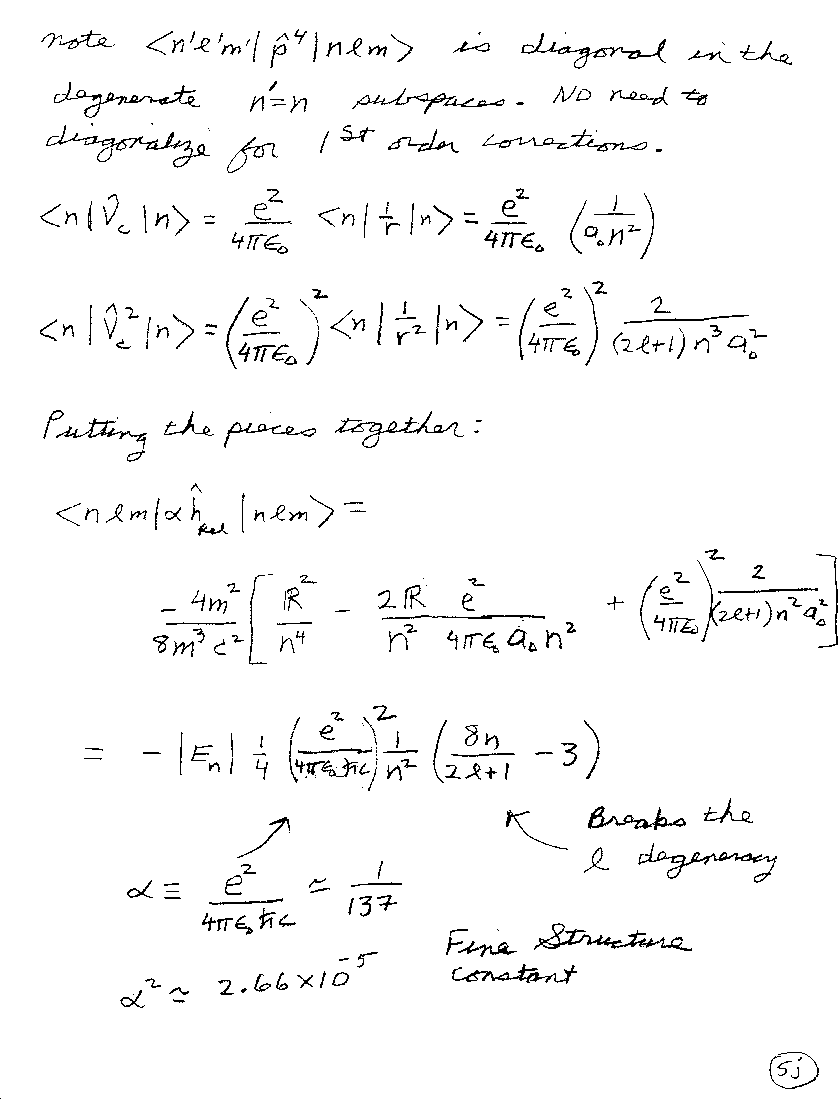 note <n'l'm'| p̂⁴ |nlm> is diagonal in the
degenerate n'=n subspaces. NO need to
diagonalize for 1st order corrections.
<n|V̂_c|n> = e²/(4πε₀) <n|1/r|n> = e²/(4πε₀) (1/(a₀n²))
<n|V̂_c²|n> = (e²/(4πε₀))² <n|1/r²|n> = (e²/(4πε₀))² 2/((2l+1)n³a₀²)
Putting the pieces together:
<nlm|αĥ_Rel|nlm> =
-4m²/(8m³c²) [ ℝ²/n⁴ - 2ℝ/n² e²/(4πε₀a₀n²) + (e²/(4πε₀))² 2/((2l+1)n²a₀²) ]
= -|E_n| 1/4 (e²/(4πε₀ħc))² 1/n² (8n/(2l+1) - 3)
Breaks the
l degeneracy
α ≡ e²/(4πε₀ħc) ≃ 1/137
Fine Structure
constant
α² ≃ 2.66×10⁻⁵
5j